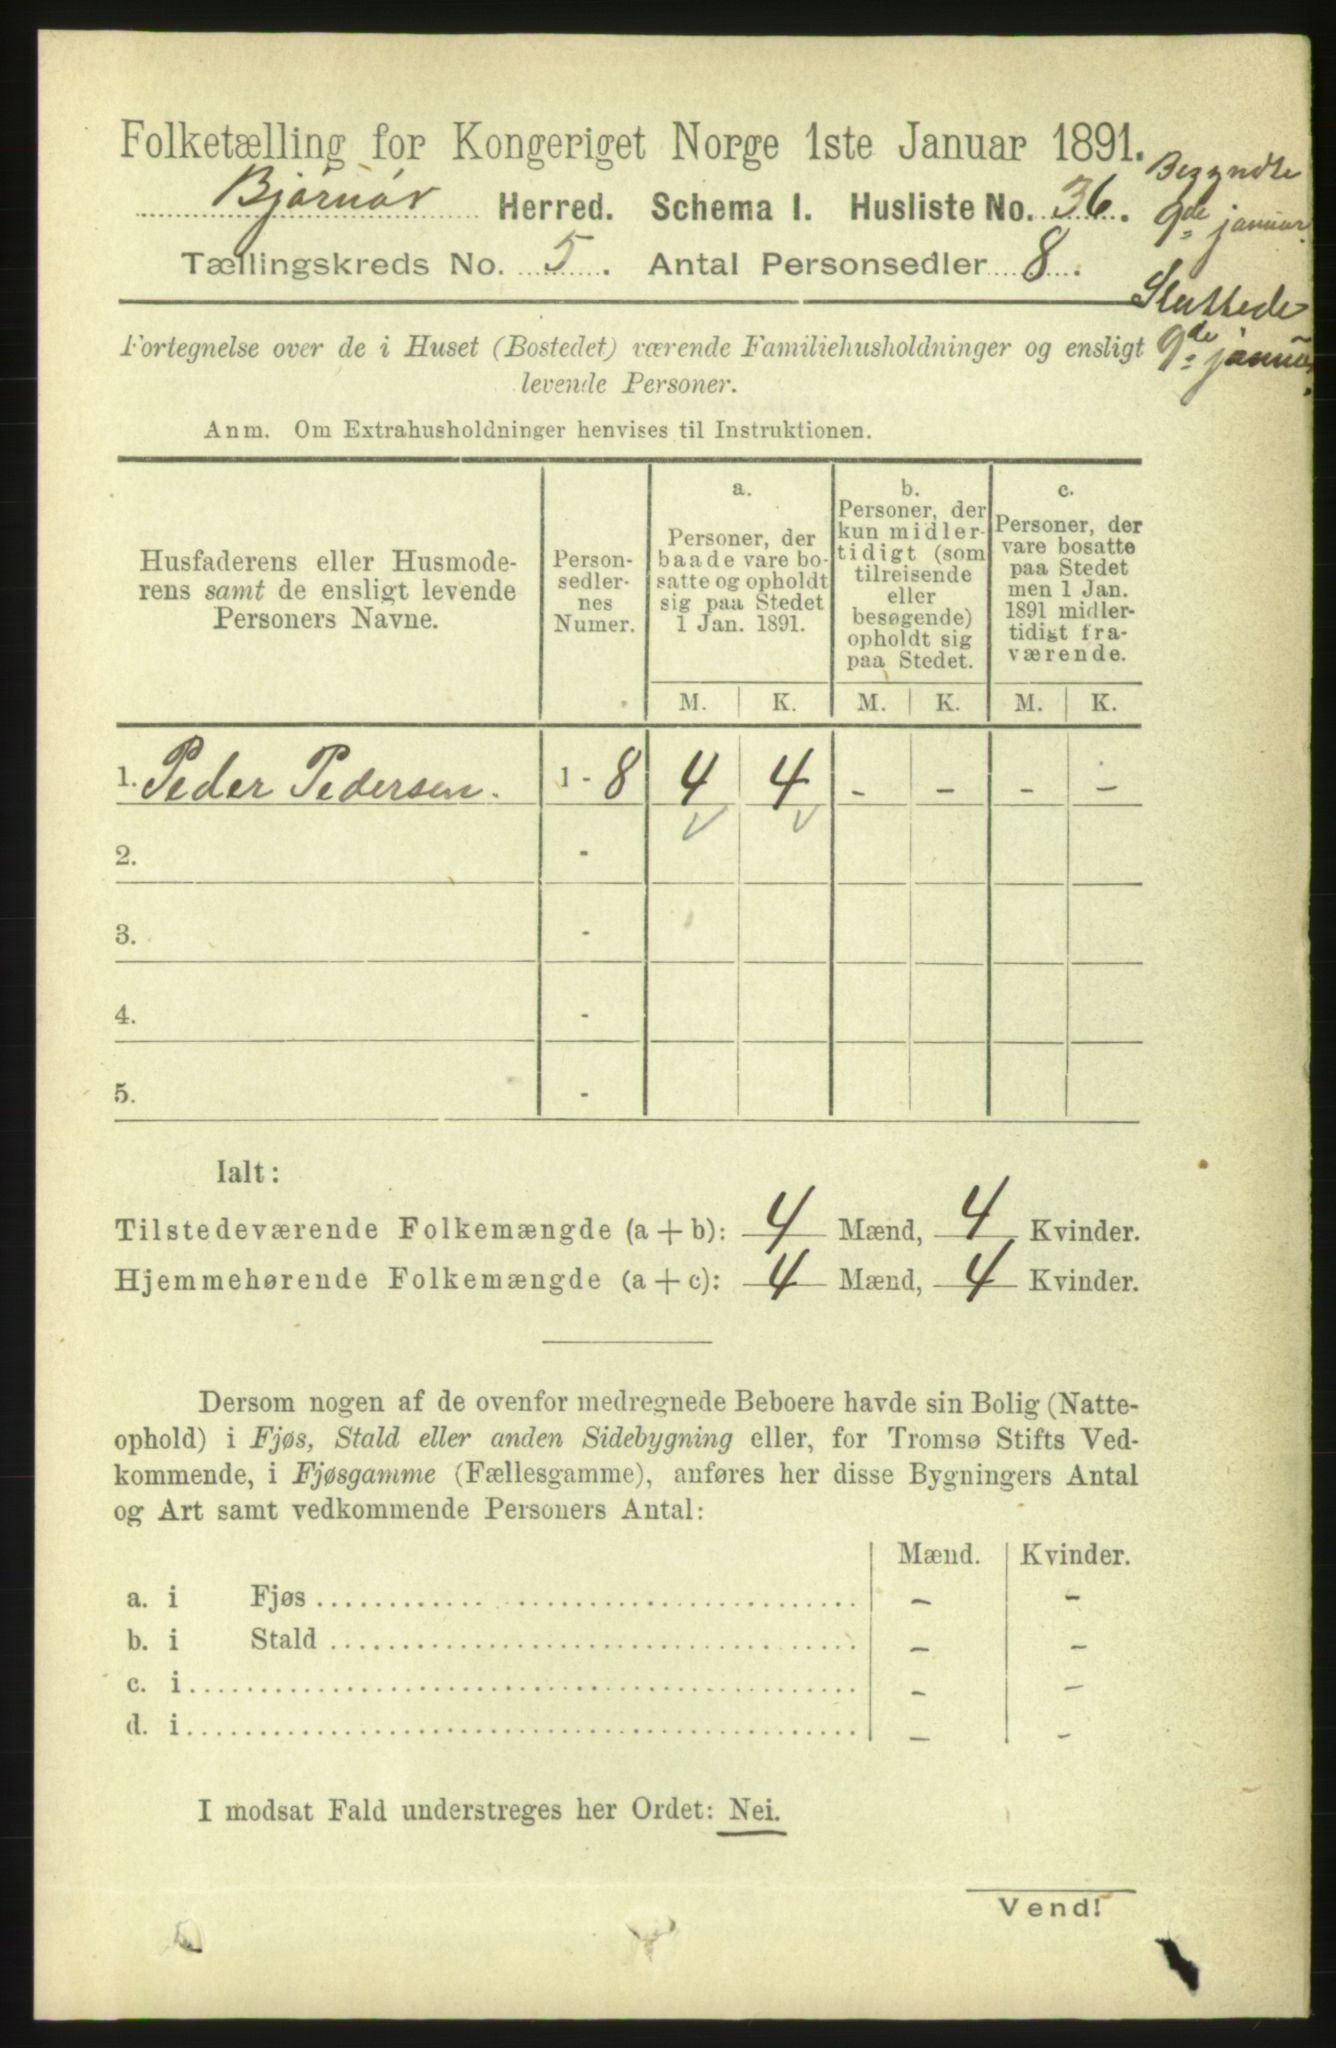 Folketælling for Kongeriget Norge 1ste Januar 1891.
Bjørnør Herred. Schema I. Husliste No. 36.
Tællingskreds No. 5. Antal Personsedler 8.
Begyndte
9de januar.
Sluttede
9de januar.
Fortegnelse over de i Huset (Bostedet) værende Familiehusholdninger og ensligt
levende Personer.
Anm. Om Extrahusholdninger henvises til Instruktionen.
Husfaderens eller Husmode-
rens samt de ensligt levende
Personers Navne.
Person-
sedler-
nes
Numer.
a.
Personer, der
baade vare bo-
satte og opholdt
sig paa Stedet
1 Jan. 1891.
b.
Personer, der
kun midler-
tidigt (som
tilreisende
eller
besøgende)
opholdt sig
paa Stedet.
c.
Personer, der
vare bosatte
paa Stedet
men 1 Jan.
1891 midler-
tidigt fra-
værende.
M. K. M. K. M. K.
1. Peder Pedersen. 1 - 8 4 4 - - - -
2. -
3. -
4. -
5. -
Ialt:
Tilstedeværende Folkemængde (a + b): 4 Mænd, 4 Kvinder.
Hjemmehørende Folkemængde (a + c): 4 Mænd, 4 Kvinder.
Dersom nogen af de ovenfor medregnede Beboere havde sin Bolig (Natte-
ophold) i Fjøs, Stald eller anden Sidebygning eller, for Tromsø Stifts Ved-
kommende, i Fjøsgamme (Fællesgamme), anføres her disse Bygningers Antal
og Art samt vedkommende Personers Antal:
Mænd. Kvinder.
a. i Fjøs - -
b. i Stald - -
c. i - -
d. i - -
I modsat Fald understreges her Ordet: Nei.
Vend!